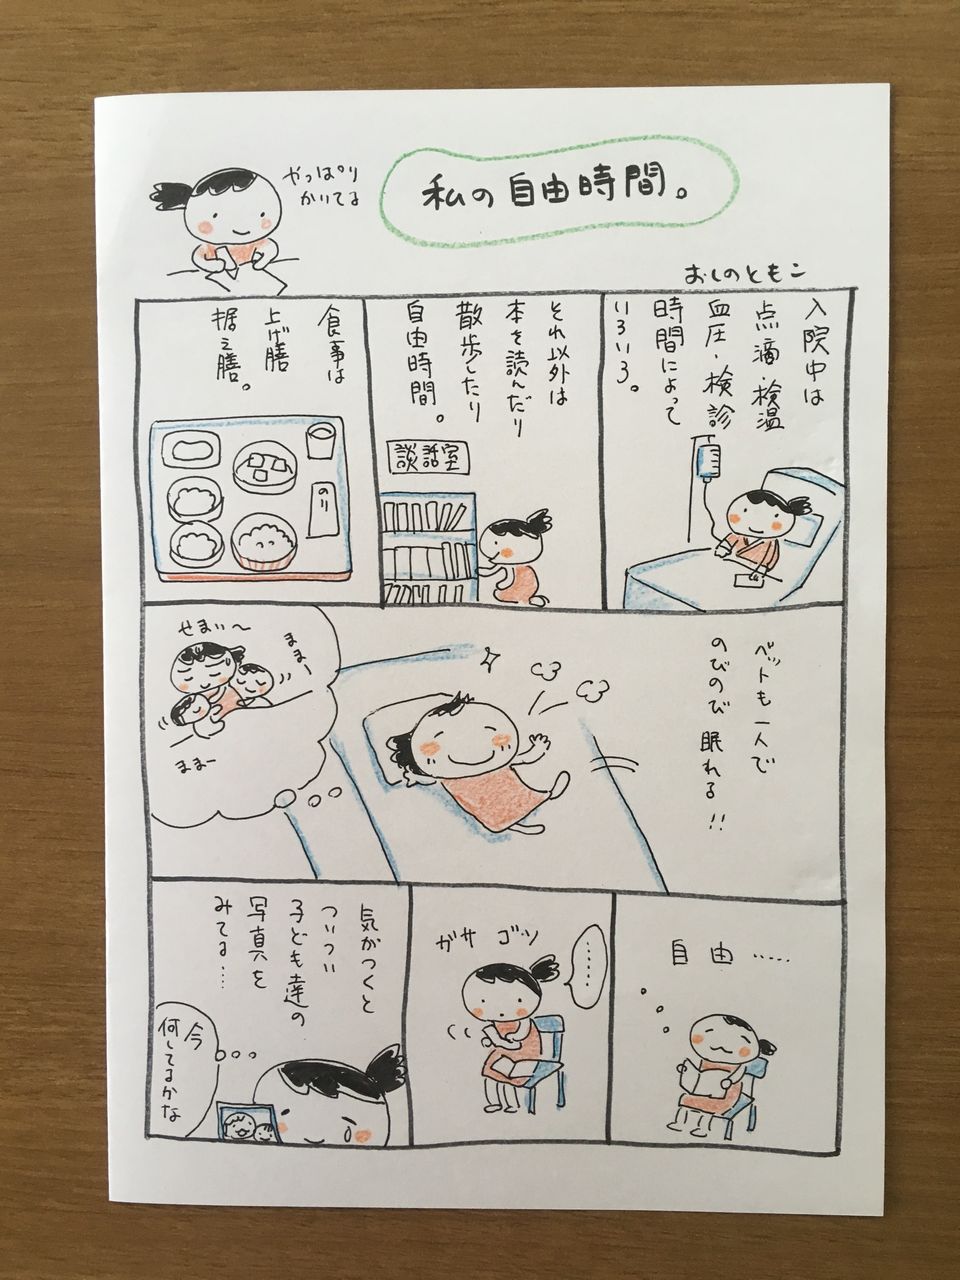 私の自由時間。
やっぱり
かいてる
おしのともこ
入院中は
点滴・検温
血圧・検診
時間によって
いろいろ。
それ以外は
本を読んだり
散歩したり
自由時間。
談話室
食事は
上げ膳
据え膳。
のり
ベットも一人で
のびのび眠れる!!
せまい〜
ままー
ままー
自由……
……
ガサゴソ
気がつくと
ついつい
子ども達の
写真を
みてる……
今
何してるかな